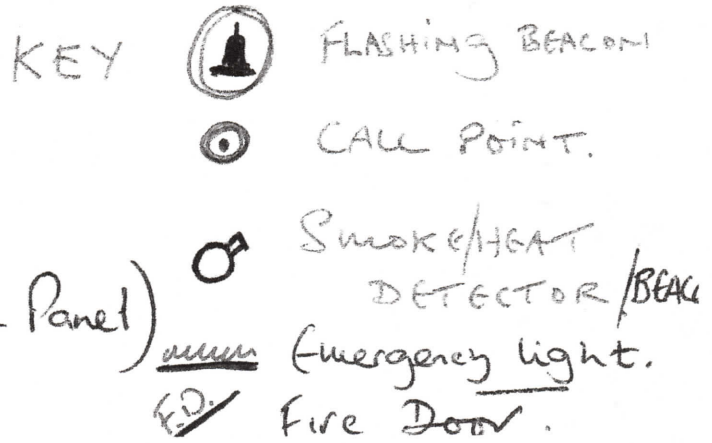 KEY FLASHING BEACON
CALL POINT.
SMOKE/HEAT
DETECTOR/BEAC
Panel)
Emergency light.
F.D. Fire Door.